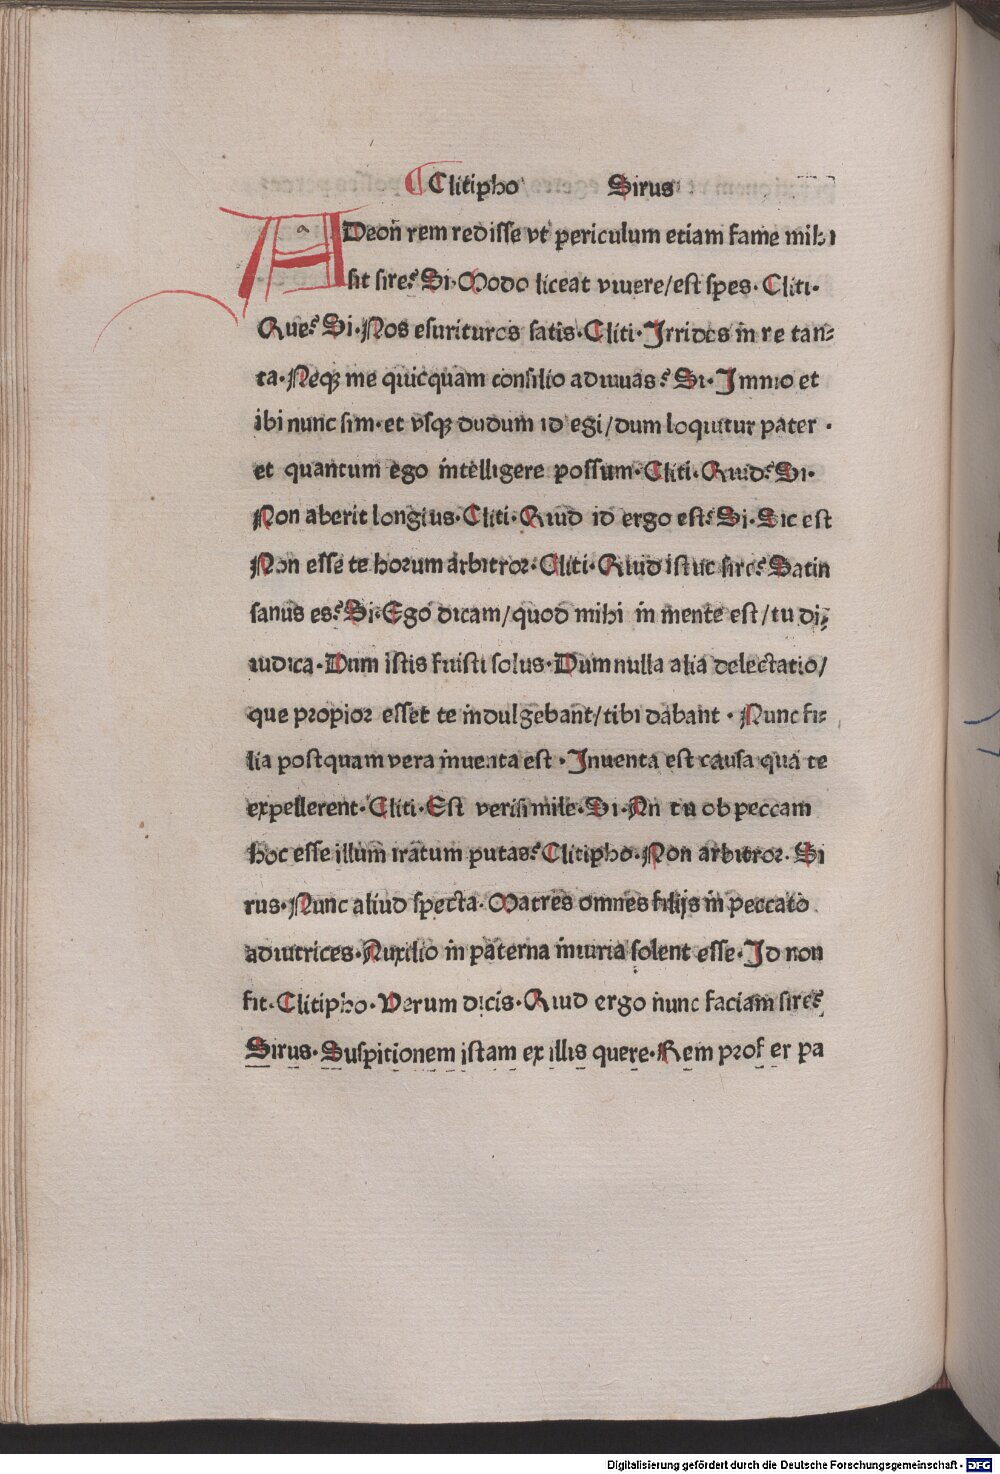 Clitipho Sirus
ADeon̄ rem redisse vt periculum etiam fame mihi
sit sire? Si. Modo liceat viuere/est spes. Cliti.
Que? Si. Nos esurituros satis. Cliti. Irrides in re tan-
ta. Neqꝫ me quicquam consilio adiuuas? Si. Immo et
ibi nunc sim. et vsqꝫ dudum id egi/dum loquitur pater .
et quantum ego intelligere possum. Cliti. Quid? Si.
Non aberit longius. Cliti. Quid id ergo est? Si. Sic est
Non esse te horum arbitror. Cliti. Quid istuc sire? Satin
sanus es? Si. Ego dicam/quod mihi in mente est/tu di-
iudica. Dum istis fuisti solus. Dum nulla alia delectatio/
que propior esset te indulgebant/tibi dabant . Nunc fi-
lia postquam vera inuenta est . Inuenta est causa qua te
expellerent. Cliti. Est verisimile. Si. An tu ob peccam
hoc esse illum iratum putas? Clitipho. Non arbitror. Si
rus. Nunc aliud specta. Matres omnes filijs in peccato
adiutrices. Auxilio in paterna iniuria solent esse. Id non
fit. Clitipho. Verum dicis. Quid ergo nunc faciam sire?
Sirus. Suspitionem istam ex illis quere. Rem profer pa
Digitalisierung gefördert durch die Deutsche Forschungsgemeinschaft - DFG